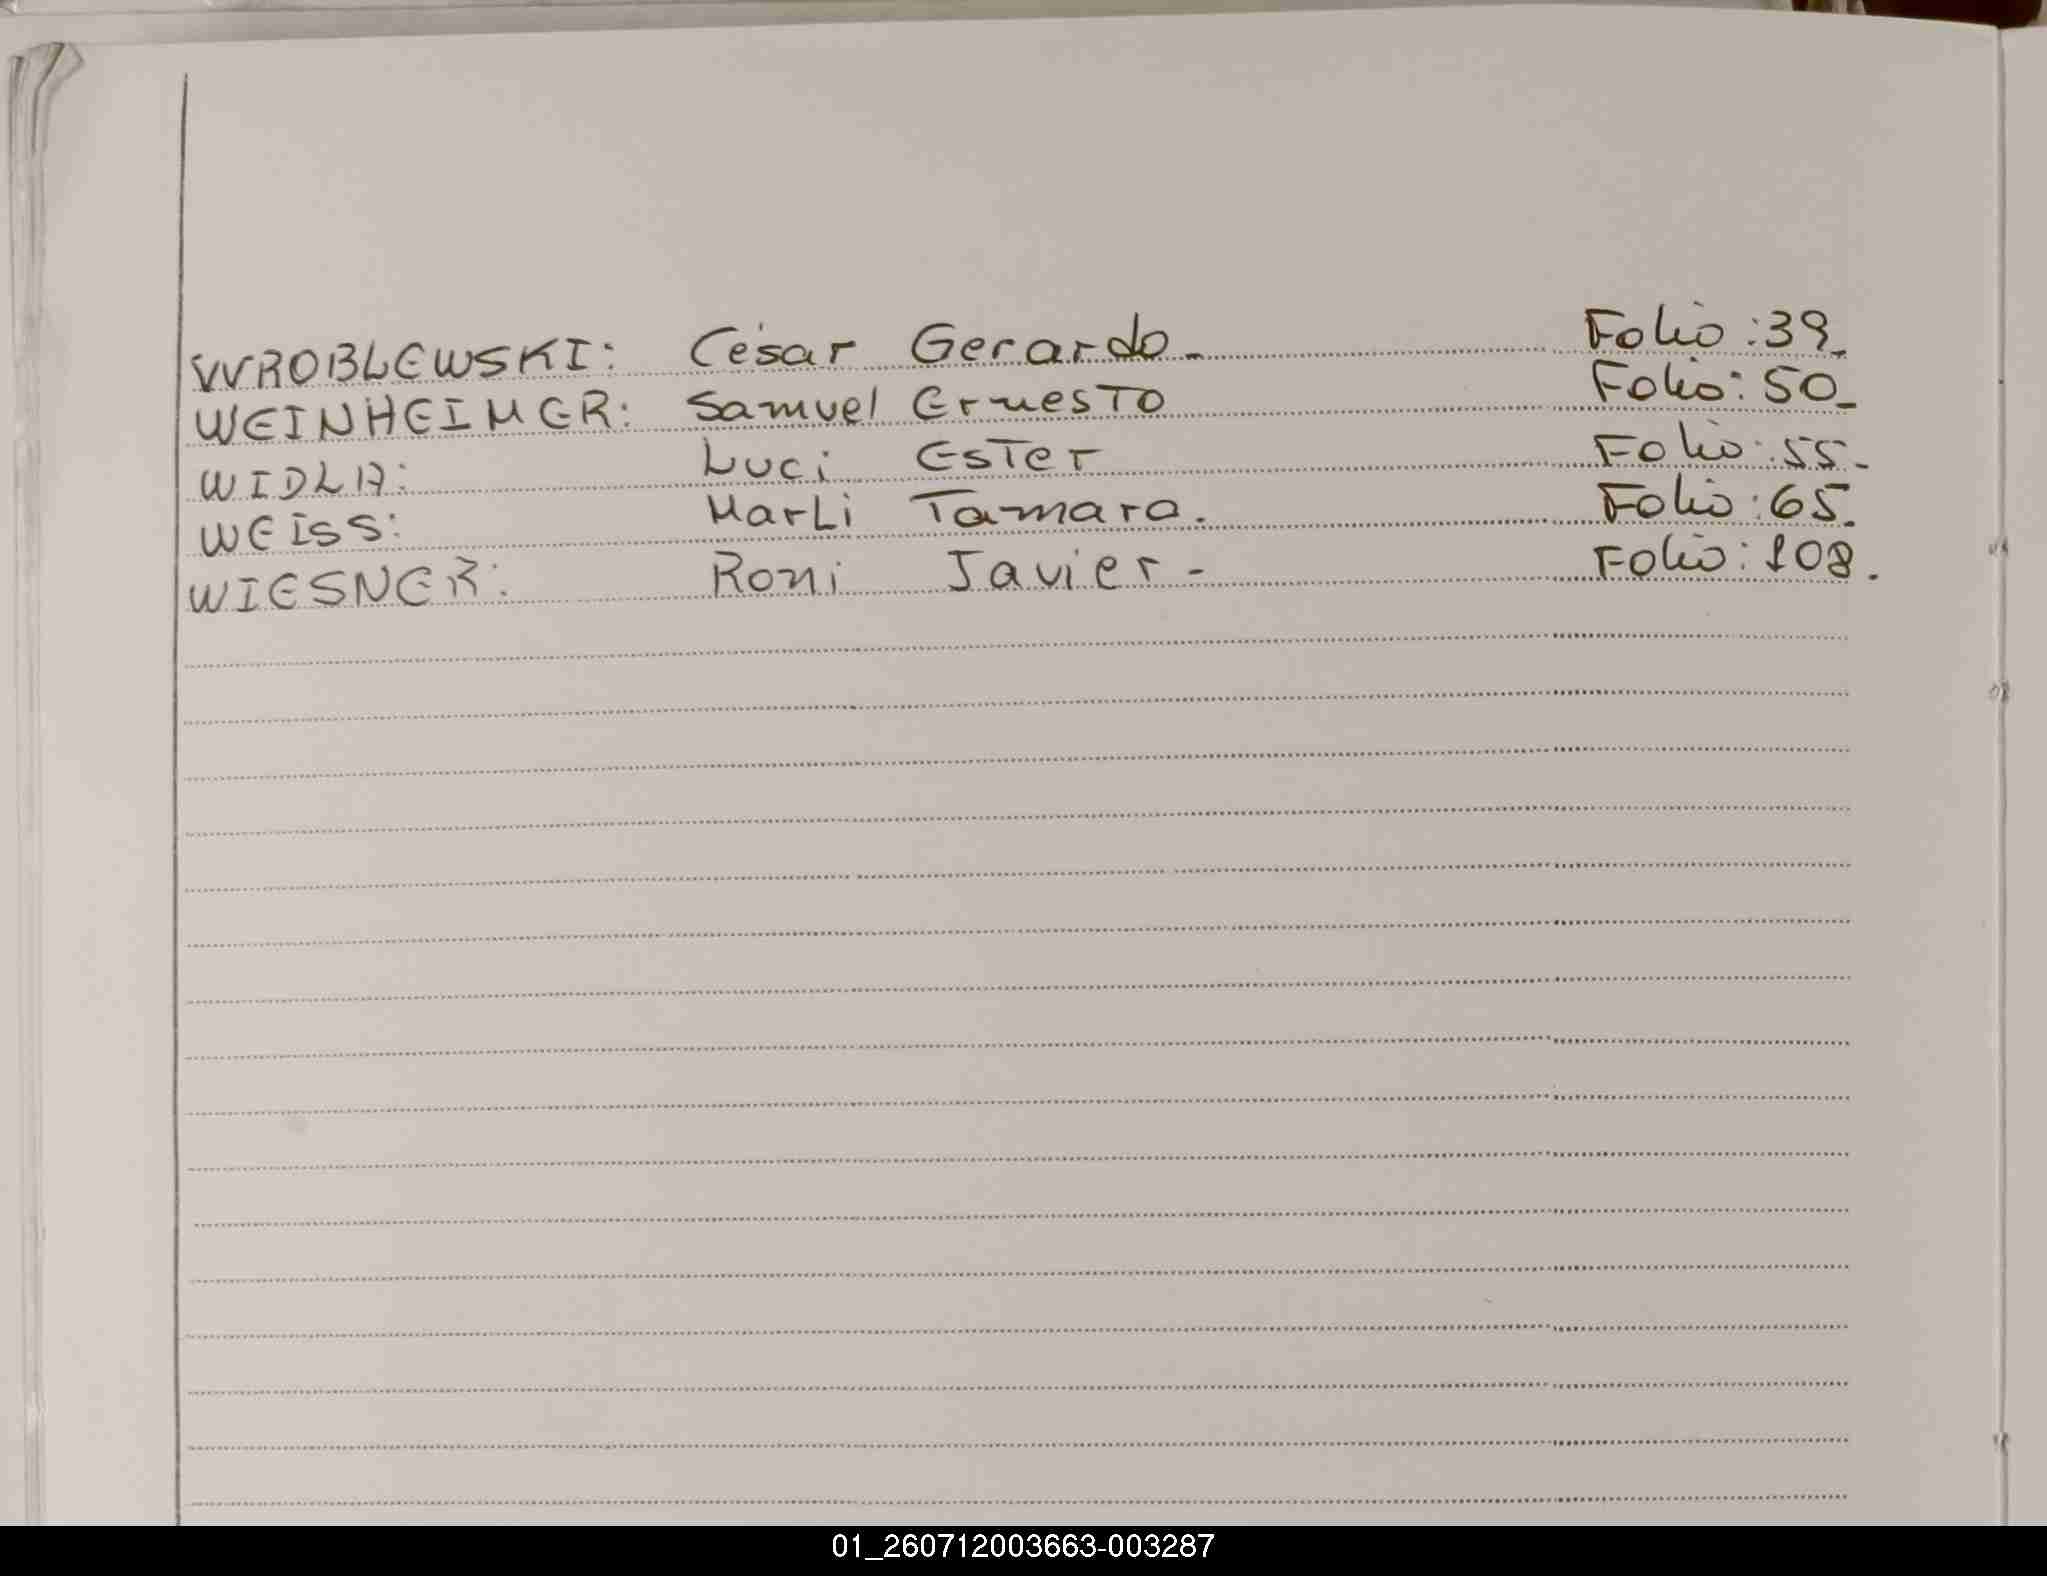 WROBLEWSKI: César Gerardo. Folio: 39.
WEINHEIMER: Samuel Ernesto Folio: 50.
WIDLA: Luci Ester Folio: 55.
WEISS: Marli Tamara. Folio: 65.
WIESNER: Roni Javier - Folio: 108.
01_260712003663-003287